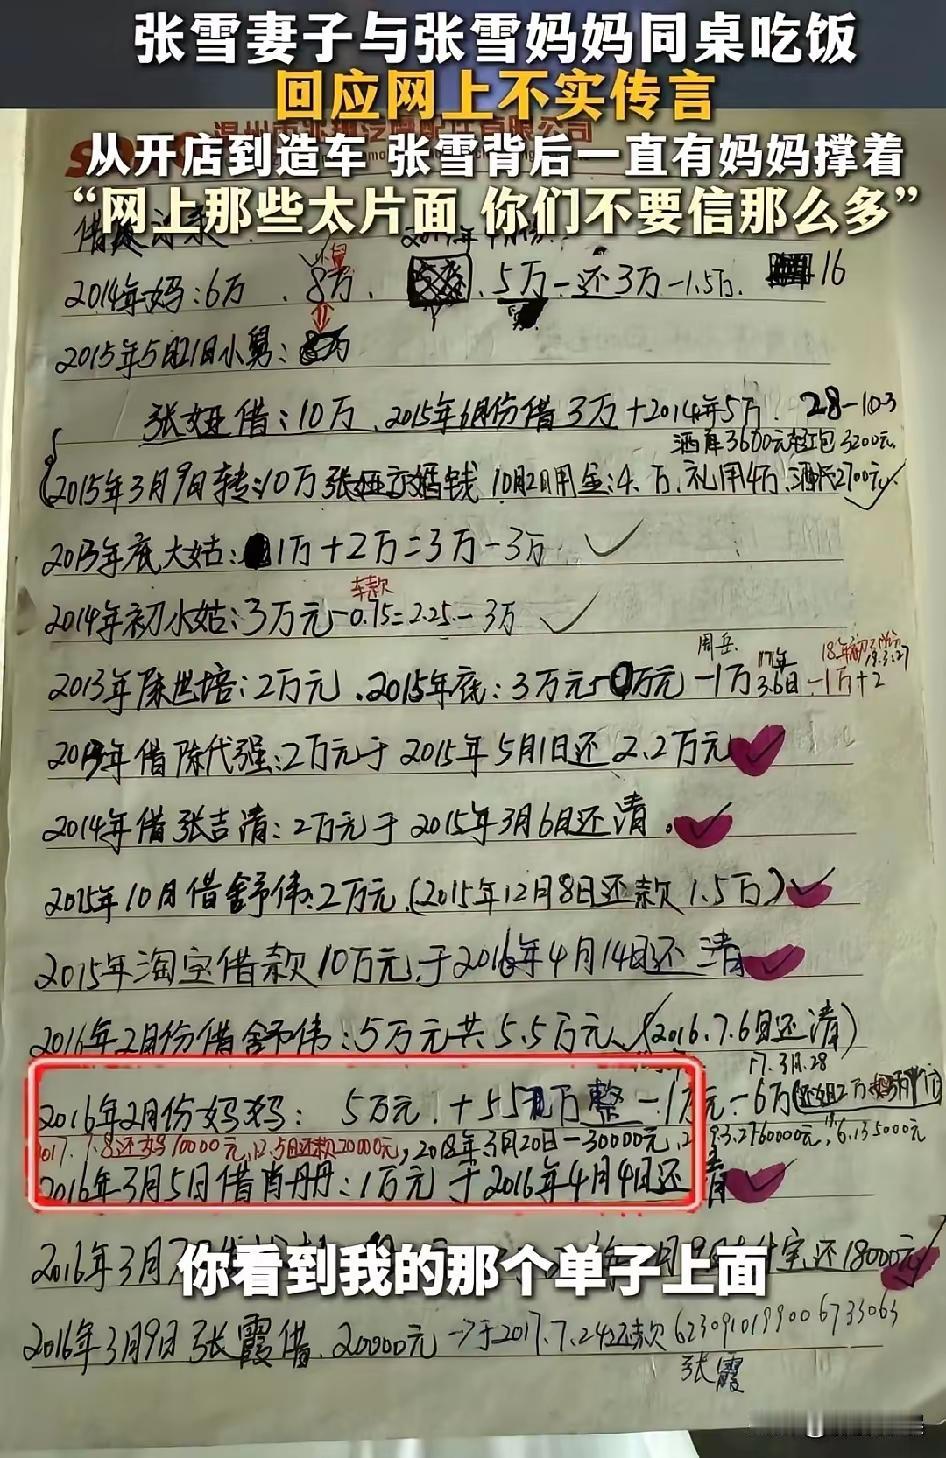 张雪妻子与张雪妈妈同桌吃饭
回应网上不实传言
从开店到造车 张雪背后一直有妈妈撑着
“网上那些太片面 你们不要信那么多”
小舅
2014年妈:6万、8万、5万-还3万-1.5万. 16
2015年5月21日小舅:8万
张娅借:10万、2015年6月份借3万+2014年5万. 28-10-3
酒席3600元红包3200元
2015年3月9日转:10万张娅 10月2日用金:4.万、礼用4万、
2013年底大姑:1万+2万=3万-3万
车款
2014年初小姑:3万元-0.75=2.25-3万
周岳
17年
2013年陈世培:2万元、2015年底:3万元-0万元-1万 3.6日-1万+2
2013年借陈代强:2万元于2015年5月1日还2.2万元
2014年借张吉清:2万元于2015年3月6日还清.
2015年10月借舒伟:2万元.(2015年12月8日还款1.5万)
2015年淘宝借款10万元.于2016年4月14日还清
2016年2月份借舒伟:5万元共5.5万元(2016.7.6日还清)
17.3月.28
2016年2月份妈妈:5万元.+5万整-1万元-6万
2017.7.8还妈10000元,12.5日还款20000元,2018年3月20日-30000元,
2016年3月5日借肖册册:1万元于2016年4月4日还清
2016年3月7日 宝还18000元
你看到我的那个单子上面
2016年3月9日张霞借.20000元→于2017.7.24还款6230910199006733063
张霞